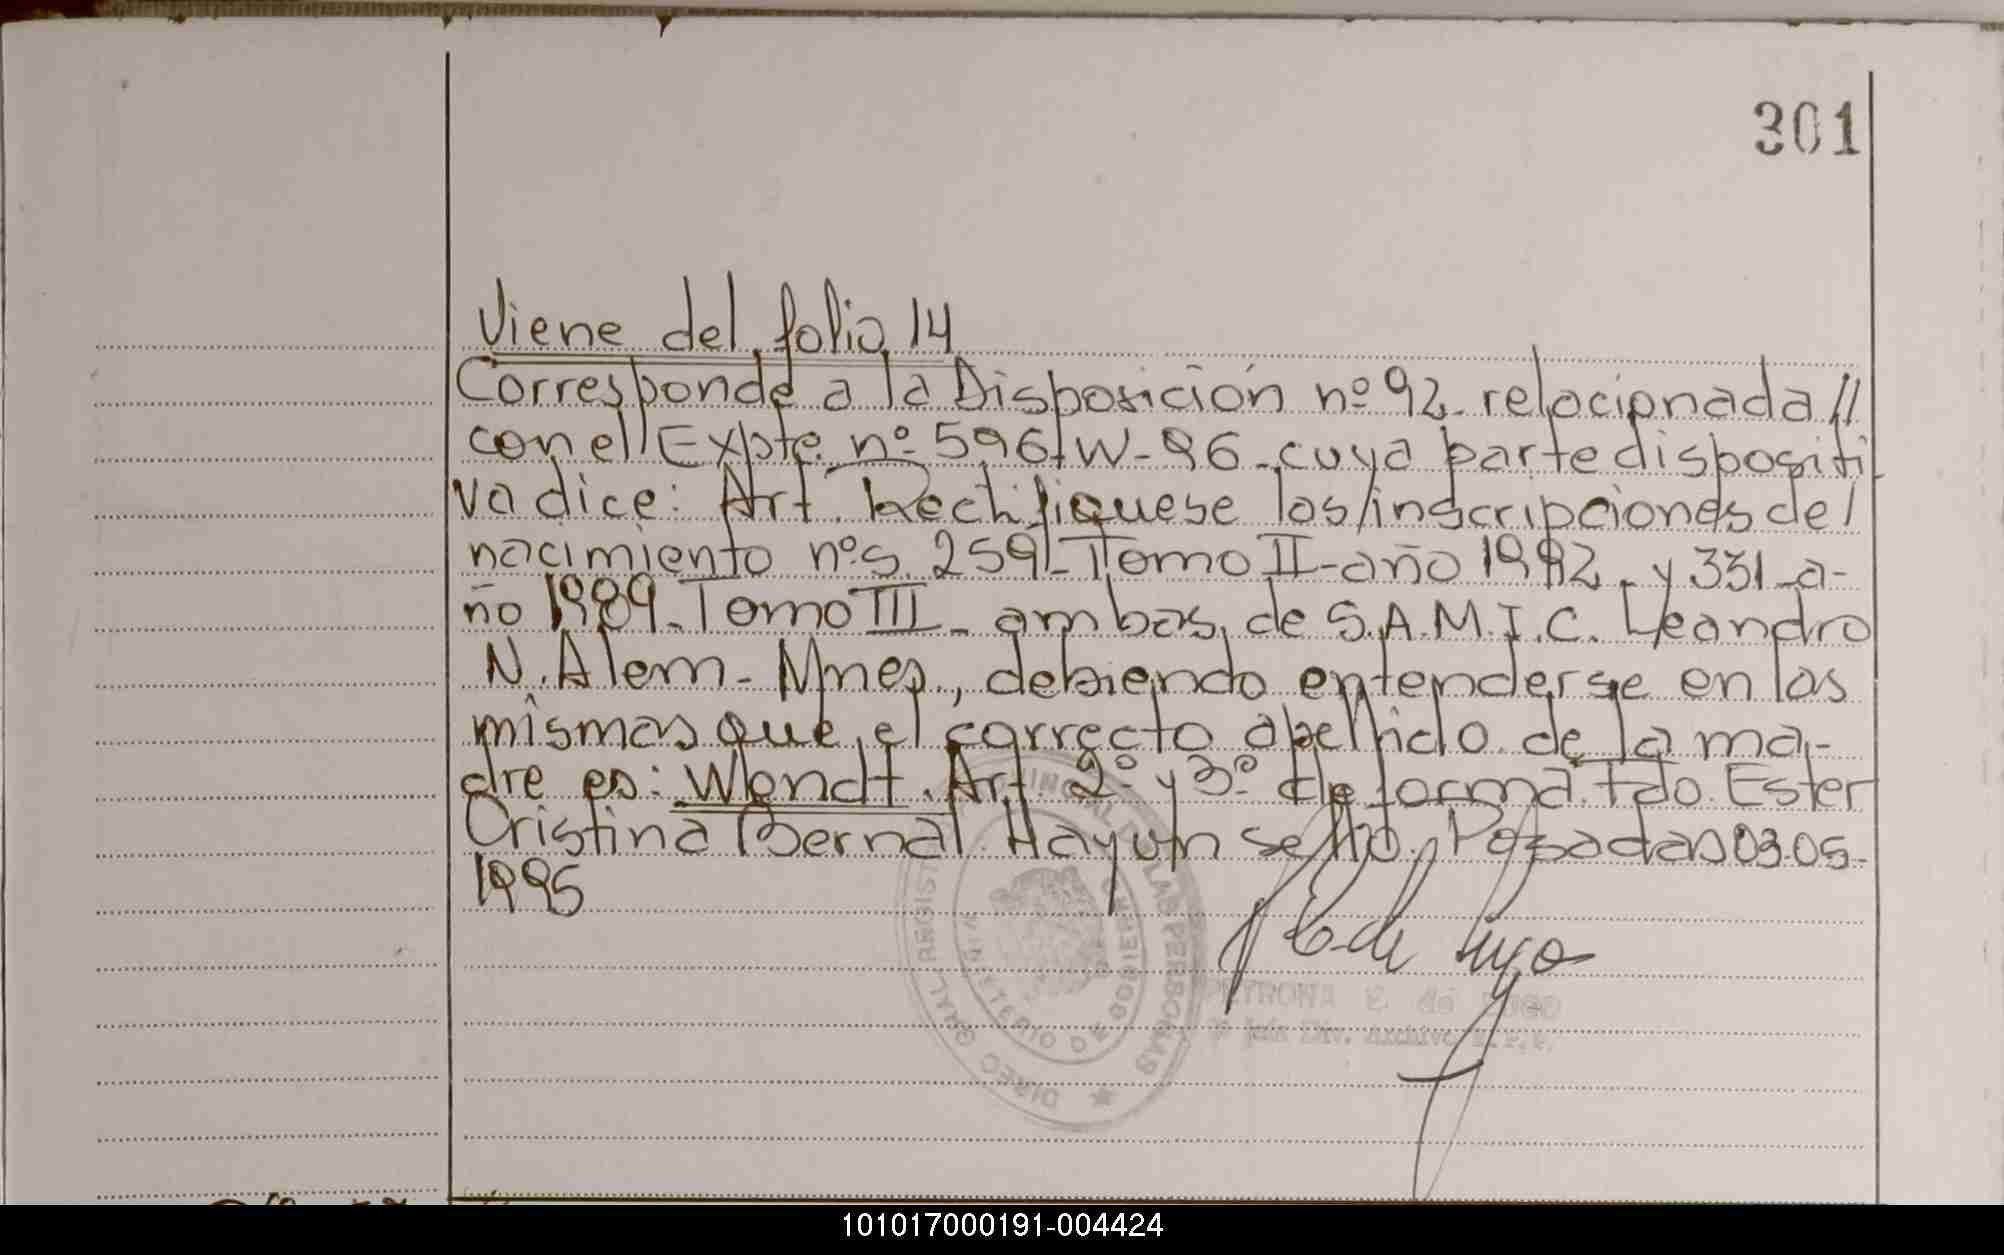 301
Viene del folio 14
Corresponde a la Disposición nº 92 - relacionada //
con el/ Expte. nº 596/W-96 - cuya parte dispositi
va dice: Art. Rectifíquese las/inscripciones de/
nacimiento nºs. 259 - Tomo II - año 1982 - y 331 - a-
ño 1989 - Tomo III - ambas, de S.A.M.I.C. Leandro
N. Alem - Mnes., debiendo entenderse en las
mismas que, el correcto apellido de la ma-
dre es: Wendt. Art. 2º y 3º de forma. Fdo. Ester
Cristina Bernal. Hay un sello. Posadas 03.05.
1995
DIREC. GRAL. REGISTRO PROVINCIAL DE LAS PERSONAS
MINISTERIO DE GOBIERNO
PETRONA de
Jefe Div. Archivo
101017000191-004424